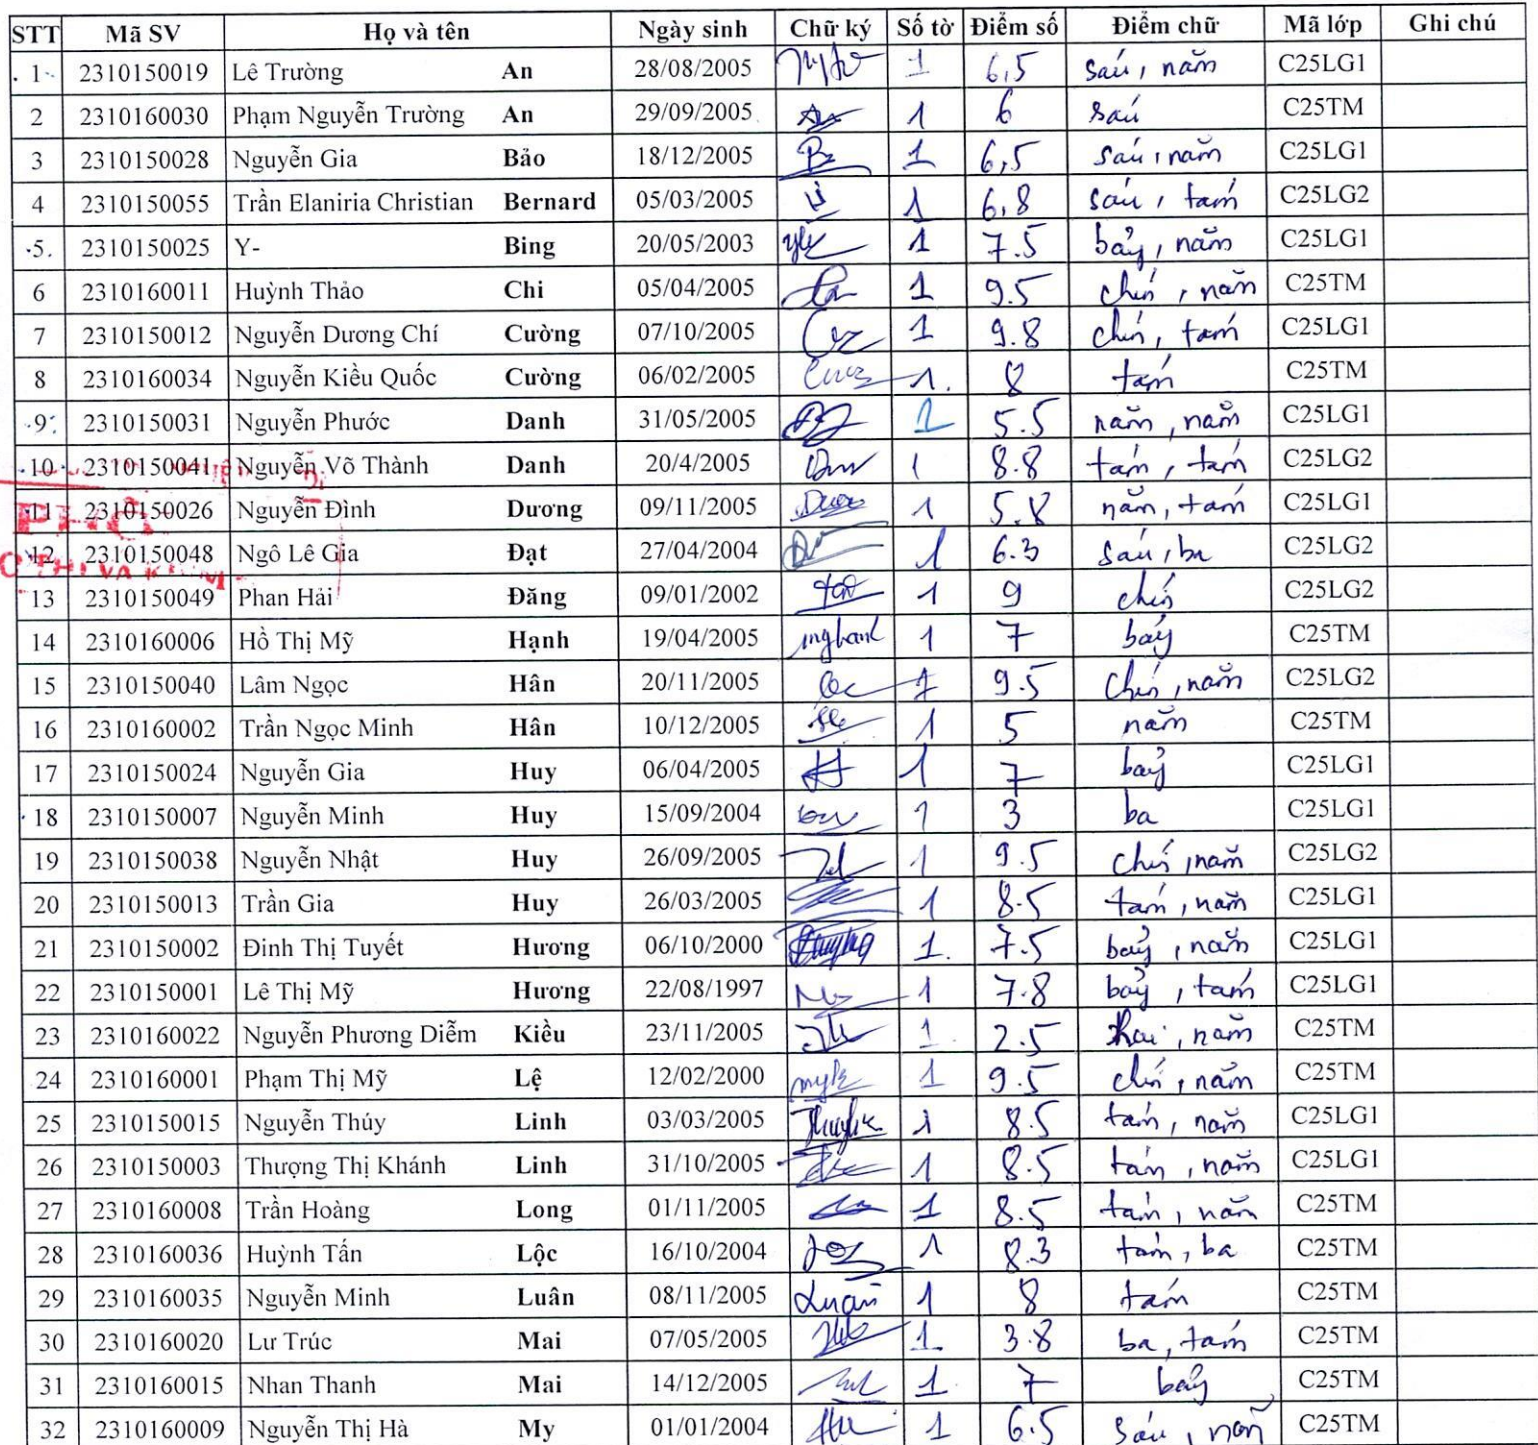 STT Mã SV Họ và tên Ngày sinh Chữ ký Số tờ Điểm số Điểm chữ Mã lớp Ghi chú
1 2310150019 Lê Trường An 28/08/2005 1 6,5 sáu, năm C25LG1
2 2310160030 Phạm Nguyễn Trường An 29/09/2005 1 6 sáu C25TM
3 2310150028 Nguyễn Gia Bảo 18/12/2005 1 6,5 sáu, năm C25LG1
4 2310150055 Trần Elaniria Christian Bernard 05/03/2005 1 6,8 sáu, tám C25LG2
5. 2310150025 Y- Bing 20/05/2003 1 7.5 bảy, năm C25LG1
6 2310160011 Huỳnh Thảo Chi 05/04/2005 1 9.5 chín, năm C25TM
7 2310150012 Nguyễn Dương Chí Cường 07/10/2005 1 9.8 chín, tám C25LG1
8 2310160034 Nguyễn Kiều Quốc Cường 06/02/2005 1. 8 tám C25TM
9 2310150031 Nguyễn Phước Danh 31/05/2005 1 5.5 năm, năm C25LG1
10 2310150041 Nguyễn Võ Thành Danh 20/4/2005 1 8.8 tám, tám C25LG2
11 2310150026 Nguyễn Đình Dương 09/11/2005 1 5.8 năm, tám C25LG1
12 2310150048 Ngô Lê Gia Đạt 27/04/2004 1 6.3 sáu, ba C25LG2
13 2310150049 Phan Hải Đăng 09/01/2002 1 9 chín C25LG2
14 2310160006 Hồ Thị Mỹ Hạnh 19/04/2005 1 7 bảy C25TM
15 2310150040 Lâm Ngọc Hân 20/11/2005 1 9.5 chín, năm C25LG2
16 2310160002 Trần Ngọc Minh Hân 10/12/2005 1 5 năm C25TM
17 2310150024 Nguyễn Gia Huy 06/04/2005 1 7 bảy C25LG1
18 2310150007 Nguyễn Minh Huy 15/09/2004 1 3 ba C25LG1
19 2310150038 Nguyễn Nhật Huy 26/09/2005 1 9.5 chín, năm C25LG2
20 2310150013 Trần Gia Huy 26/03/2005 1 8.5 tám, năm C25LG1
21 2310150002 Đinh Thị Tuyết Hương 06/10/2000 1. 7.5 bảy, năm C25LG1
22 2310150001 Lê Thị Mỹ Hương 22/08/1997 1 7.8 bảy, tám C25LG1
23 2310160022 Nguyễn Phương Diễm Kiều 23/11/2005 1. 2.5 hai, năm C25TM
24 2310160001 Phạm Thị Mỹ Lệ 12/02/2000 1 9.5 chín, năm C25TM
25 2310150015 Nguyễn Thúy Linh 03/03/2005 1 8.5 tám, năm C25LG1
26 2310150003 Thượng Thị Khánh Linh 31/10/2005 1 8.5 tám, năm C25LG1
27 2310160008 Trần Hoàng Long 01/11/2005 1 8.5 tám, năm C25TM
28 2310160036 Huỳnh Tấn Lộc 16/10/2004 1 8.3 tám, ba C25TM
29 2310160035 Nguyễn Minh Luân 08/11/2005 Luân 1 8 tám C25TM
30 2310160020 Lư Trúc Mai 07/05/2005 1. 3.8 ba, tám C25TM
31 2310160015 Nhan Thanh Mai 14/12/2005 1 7 bảy C25TM
32 2310160009 Nguyễn Thị Hà My 01/01/2004 1 6.5 sáu, năm C25TM